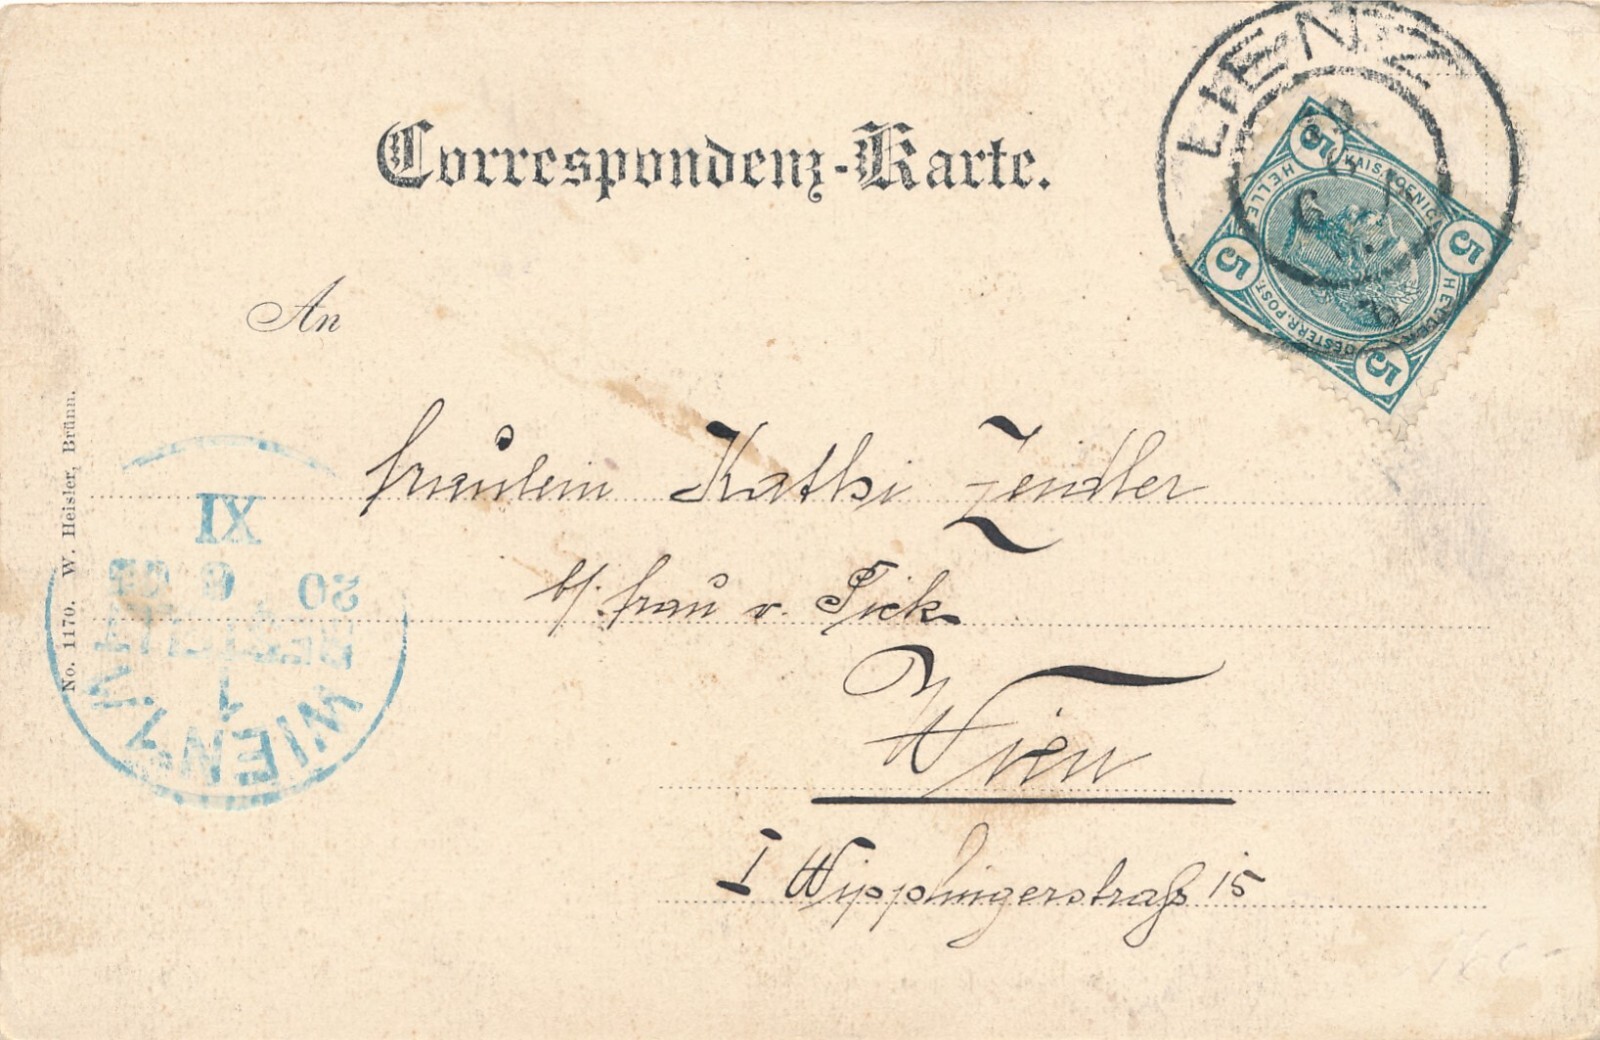 LIENZ
Correspondenz-Karte.
5 KAIS. KOENIGL. 5
HELLER HELLER
5 OESTERR. POST 5
An
Fräulein Kathi Zeidler
b/. Frau v. Pick
Wien
I Wipplingerstraß 15
No. 1170. W. Heisler, Brünn.
WIEN 1/1
1
BESTELLT
20 6 03
XI